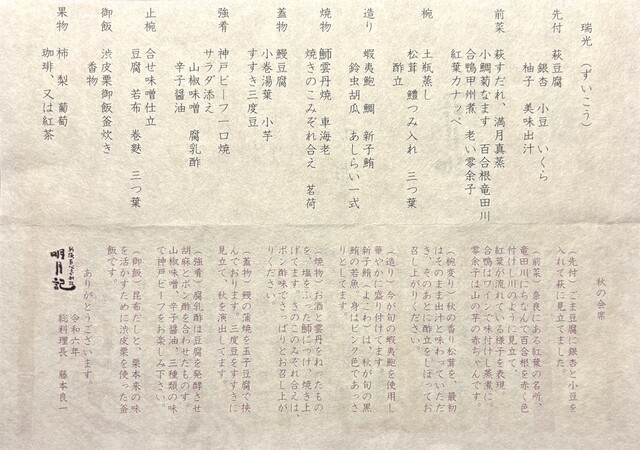 瑞光（ずいこう）
先付 萩豆腐
銀杏 小豆 いくら
柚子 美味出汁
前菜 萩すだれ、満月真蒸
小鯛菊なます 百合根竜田川
合鴨甲州煮 老い零余子
紅葉カナッペ
椀 土瓶蒸し
松茸 鱧つみ入れ 三つ葉
酢立
造り 蝦夷鮑 鯛 新子鮪
鈴虫胡瓜 あしらい一式
焼物 鰤雲丹焼 車海老
焼きのこみぞれ合え 茗荷
蓋物 鰻豆腐
小巻湯葉 小芋
すすき三度豆
強肴 神戸ビーフ一口焼
サラダ添え
山椒味噌 腐乳酢
辛子醤油
止椀 合せ味噌仕立
豆腐 若布 巻麩 三つ葉
御飯 渋皮栗御飯釜炊き
香物
果物 柿 梨 葡萄
珈琲、又は紅茶
秋の会席
（先付）ごま豆腐に銀杏と小豆を
入れて萩に見立てました。
（前菜）奈良にある紅葉の名所、
竜田川にちなんで百合根を赤く色
付けし川のように見立て、
紅葉が流れている様子を表現。
合鴨はワインで味付けし蒸煮に、
零余子は山の芋の赤ちゃんです
（椀変り）秋の香り松茸を、最初
はそのまま出汁と味わっていただ
き、そのあとに酢立をしぼってお
召し上がりください。
（造り）今が旬の蝦夷鮑を使用し
華やかに盛り付けてます。
新子鮪（よこわ）は、秋が旬の黒
鮪の若魚、身はピンク色であっさ
りとしてます。
（焼物）お酒と雲丹をねったもの
を、塩をふった鰤につけ、焼き上
げてますきのこのみぞれ合えは、
ポン酢味でさっぱりとお召し上が
りください。
（蓋物）鰻の蒲焼を玉子豆腐で挟
んでおります、三度豆をすすきに
見立て、秋を演出してます。
（強肴）腐乳酢は豆腐を発酵させ
胡麻とポン酢を合わせたものす。
山椒味噌、辛子醤油、三種類の味
で神戸ビーフをお楽しみ下さい。
（御飯）昆布だしと、栗本来の味
を活かすために渋皮栗を使った釜
飯です。
ありがとうございます
令和六年
総料理長 藤本良一
明月記